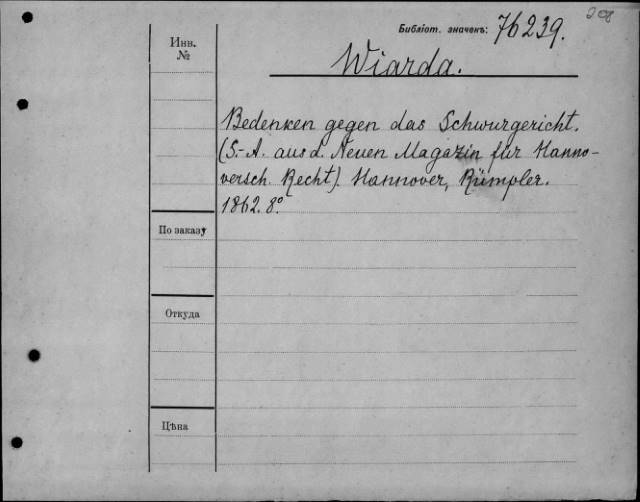 Библіот. значекъ: 76239.
Инв.
№
Wiarda.
Bedenken gegen das Schwurgericht.
(S.-A. aus d. Neuen Magazin für Hanno-
versch. Recht). Hannover, Rümpler.
1862. 8°.
По заказу
Откуда
Цѣна